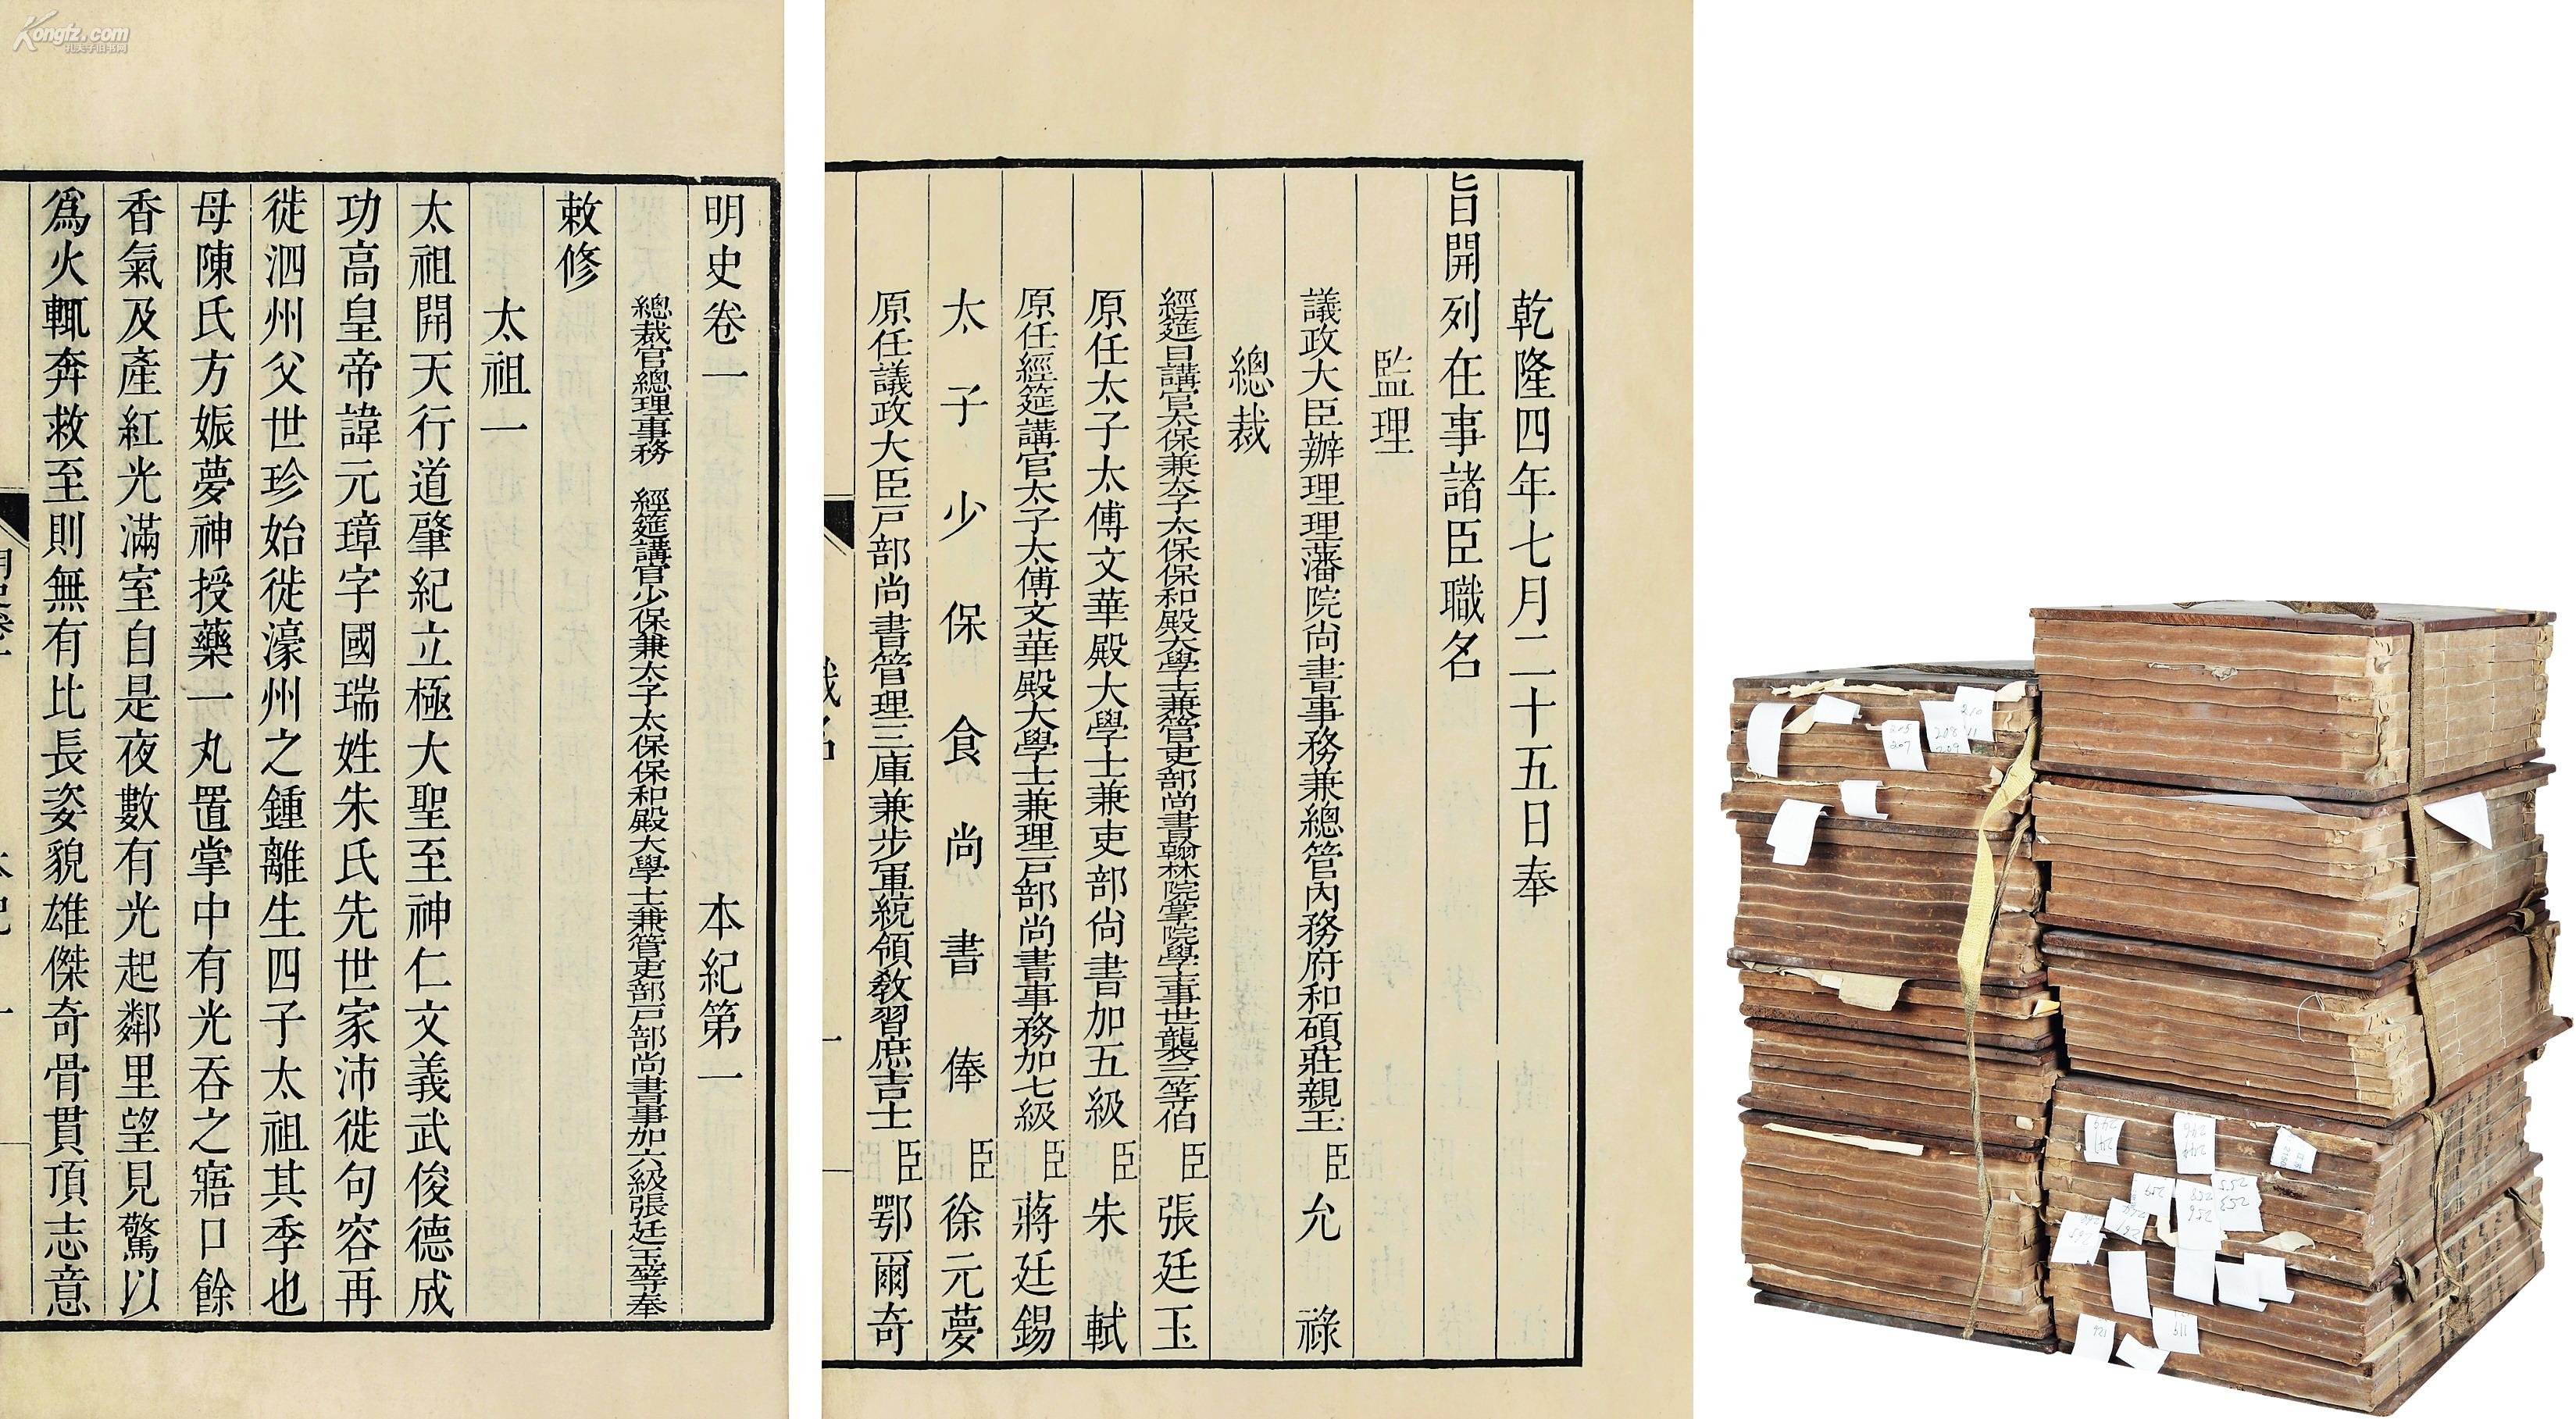 Kongfz.com
孔夫子旧书网
明史卷一 本紀第一
總裁官總理事務 經筵講官少保兼太子太保保和殿大學士兼管吏部戶部尚書事加六級張廷玉等奉
敕修
太祖一
太祖開天行道肇紀立極大聖至神仁文義武俊德成
功高皇帝諱元璋字國瑞姓朱氏先世家沛徙句容再
徙泗州父世珍始徙濠州之鍾離生四子太祖其季也
母陳氏方娠夢神授藥一丸置掌中有光吞之寤口餘
香氣及產紅光滿室自是夜數有光起鄰里望見驚以
為火輒奔救至則無有比長姿貌雄傑奇骨貫頂志意
乾隆四年七月二十五日奉
旨開列在事諸臣職名
監理
議政大臣辦理理藩院尚書事務兼總管內務府和碩莊親王臣允祿
總裁
經筵日講官太保兼太子太保保和殿大學士兼管吏部尚書翰林院掌院學士事世襲三等伯臣張廷玉
原任太子太傅文華殿大學士兼吏部尚書加五級臣朱軾
原任經筵講官太子太傅文華殿大學士兼理戶部尚書事務加七級臣蔣廷錫
太子少保食尚書俸臣徐元夢
原任議政大臣戶部尚書管理三庫兼步軍統領教習庶吉士臣鄂爾奇
210
215
207
208 11
209